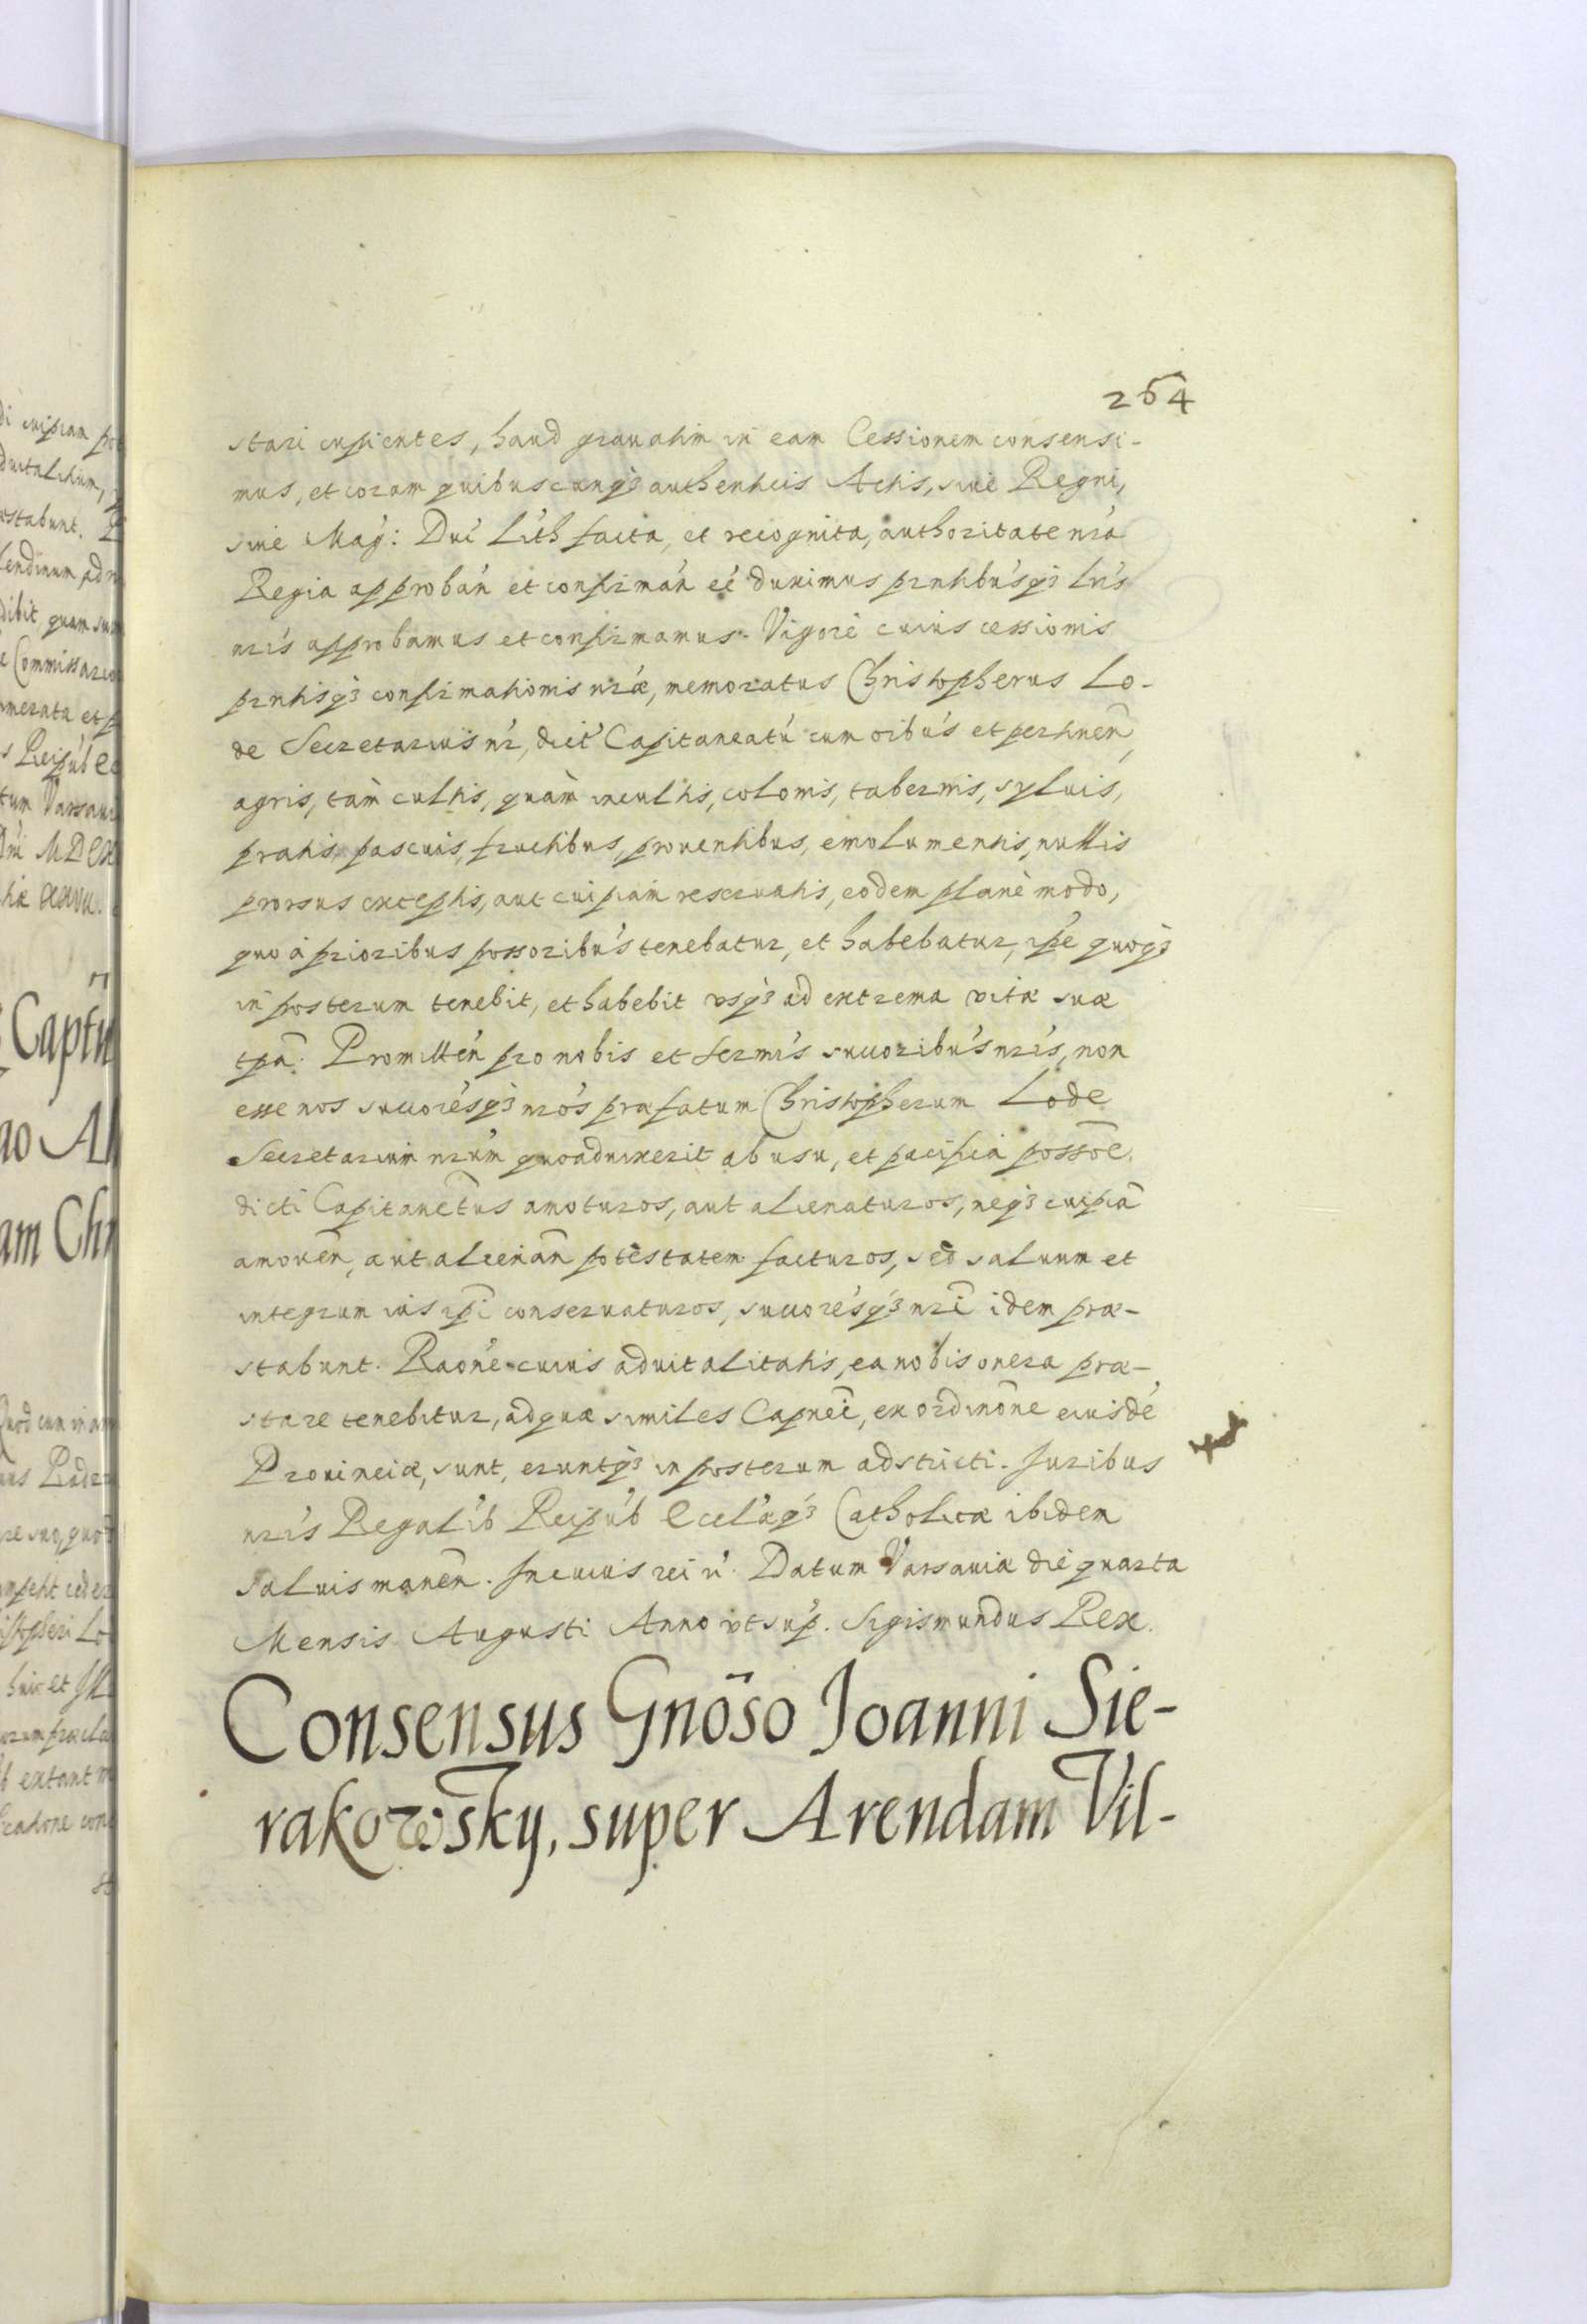 264
stari cupientes, haud grauatim in eam Cessionem consensi-
mus, et coram quibuscunq3 authenticis Actis, siue Regni,
siue Mag: Duc Lith facta, et recognita, authoritate nra
Regia approban et confirman ee duximus prntibusq3 lris
nris approbamus et confirmamus. Vigore cuius cessionis
prntisq3 confirmationis nræ, memoratus Christopherus Lo-
de Secretarius nr, dict Capitaneatu cum oibus et pertinen,
agris, tàm cultis, quàm incultis, colonis, tabernis, syluis,
pratis, pascuis, fructibus, prouentibus, emolumentis, nullis
prorsus exceptis, aut cuipiam reseruatis, eodem planè modo,
quo à prioribus possoribus tenebatur, et habebatur, ipe quoq3
in posterum tenebit, et habebit vsq3 ad extrema vitæ suæ
tpa. Promitten pro nobis et sermis succoribus nris, non
esse nos succoresq3 nros præfatum Christopherum Lode
Secretarium nrum quoaduixerit ab usu, et pacifica possoe
dicti Capitanetus amoturos, aut alienaturos, neq3 cuipia
amouen, aut alienan potestatem facturos, sed saluum et
integrum ius ipi conseruaturos, succoresq3 nri idem præ-
stabunt. Raone cuius aduitalitatis, ea nobis onera præ-
stare tenebitur, ad quæ similes Capnei, ex ordinone eiusde
Prouinciæ, sunt, eruntq3 in posterum adstricti. Juribus
nris Regalib Reipub Eccl'æq3 Catholicæ ibidem
saluis manen. In cuius rei n. Datum Varsauiæ die quarta
Mensis Augusti Anno vt sup. Sigismundus Rex.
Consensus Gnoso Joanni Sie-
rakowsky, super Arendam Vil-